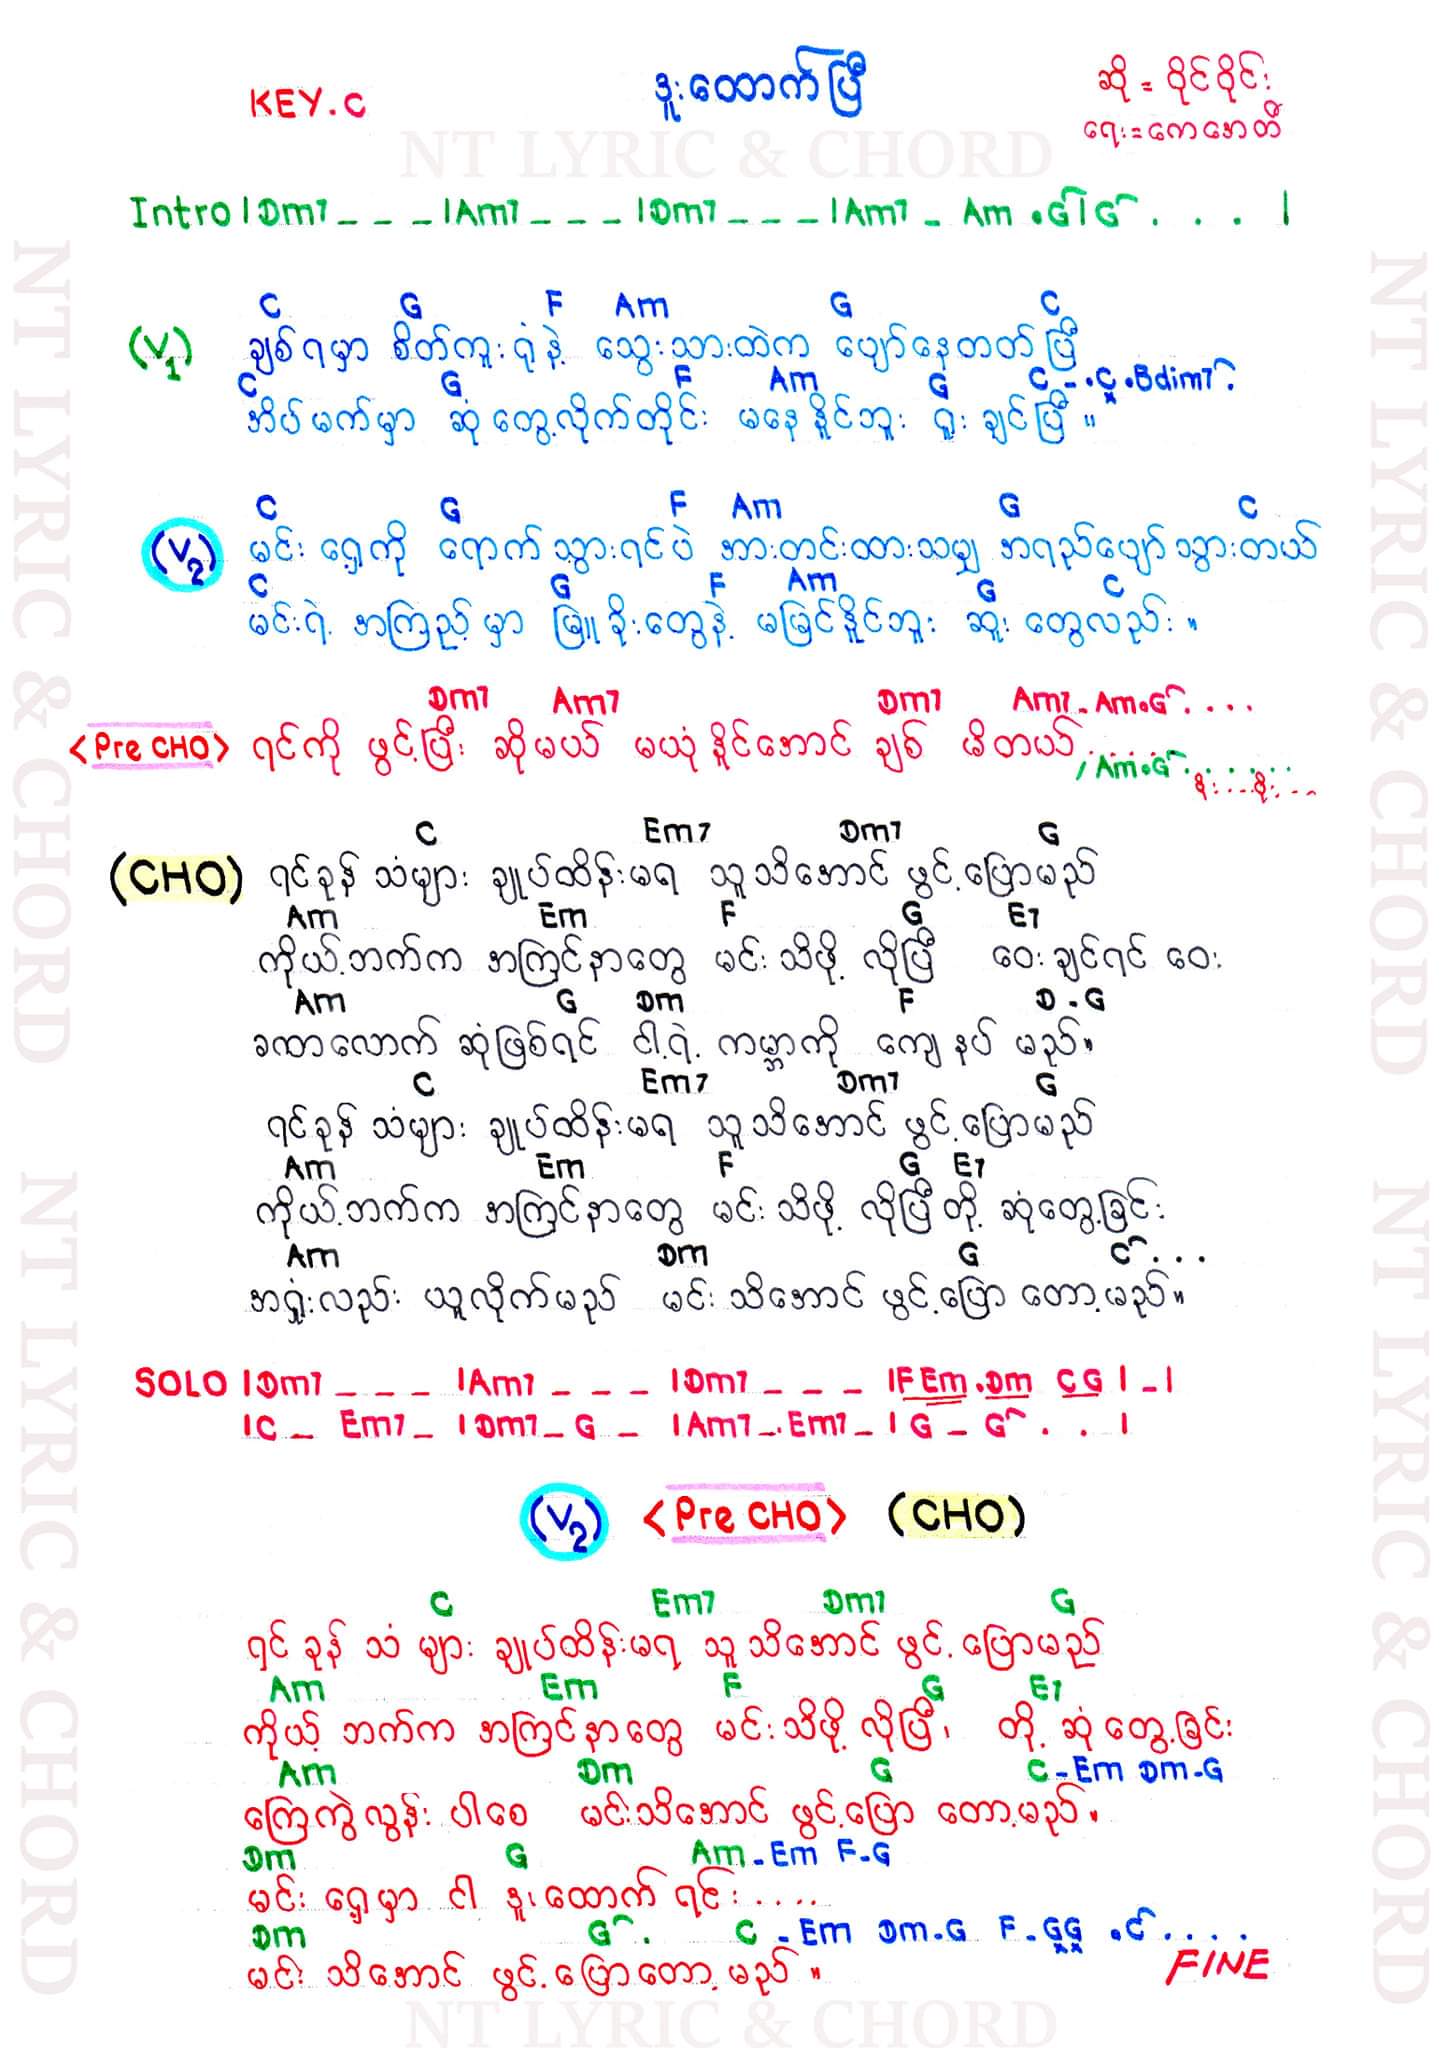 KEY.C
ဒူးထောက်ပြီ
ဆို = ဝိုင်ဝိုင်း
ရေး = ကေအေတီ
NT LYRIC & CHORD
Intro |Dm7 _ _ _ |Am7 _ _ _ |Dm7 _ _ _ |Am7 _ Am .G|G . . . |
C G F Am G C
(V1) ချစ်ရမှာ စိတ်ကူးရုံနဲ့ သွေးသားထဲက ပျော်နေတတ်ပြီ
C G F Am G C - .C .Bdim7
အိပ်မက်မှာ ဆုံတွေ့လိုက်တိုင်း မနေနိူင်ဘူး ရူးချင်ပြီ ။
C G F Am G C
(V2) မင်းရှေ့ကို ရောက်သွားရင်ပဲ အားတင်းထားသမျှ အရည်ပျော်သွားတယ်
C G F Am G C
မင်းရဲ့ အကြည့်မှာ မြူခိုးတွေနဲ့ မမြင်နိူင်ဘူး ဆူးတွေလည်း ။
Dm7 Am7 Dm7 Am7 - Am.G . . . .
<Pre CHO> ရင်ကို ဖွင့်ပြီး ဆိုမယ် မယုံနိူင်အောင် ချစ် မိတယ် . . . . .
/Am.G . . . . . .
C Em7 Dm7 G
(CHO) ရင်ခုန်သံများ ချုပ်ထိန်းမရ သူသိအောင် ဖွင့်ပြောမည်
Am Em F G E7
ကိုယ့်ဘက်က အကြင်နာတွေ မင်းသိဖို့ လိုပြီ ဝေးချင်ရင် ဝေး
Am G Dm F D . G
ခဏလောက် ဆုံဖြစ်ရင် ငါ့ရဲ့ ကမ္ဘာကို ကျေနပ် မည်။
C Em7 Dm7 G
ရင်ခုန်သံများ ချုပ်ထိန်းမရ သူသိအောင် ဖွင့်ပြောမည်
Am Em F G E7
ကိုယ့်ဘက်က အကြင်နာတွေ မင်းသိဖို့ လိုပြီ တို့ ဆုံတွေ့ခြင်း
Am Dm G C . . .
အရှုံးလည်း ယူလိုက်မည် မင်းသိအောင် ဖွင့်ပြော တော့မည်။
SOLO |Dm7 _ _ _ |Am7 _ _ _ |Dm7 _ _ _ |F Em .Dm CG | - |
|C _ Em7 _ |Dm7 _ G _ |Am7 _. Em7 _ |G _ G . . |
(V2) <Pre CHO> (CHO)
C Em7 Dm7 G
ရင်ခုန်သံများ ချုပ်ထိန်းမရ သူသိအောင် ဖွင့်ပြောမည်
Am Em F G E7
ကိုယ့်ဘက်က အကြင်နာတွေ မင်းသိဖို့ လိုပြီ၊ တို့ ဆုံတွေ့ခြင်း
Am Dm G C - Em Dm - G
ကြေကွဲလွန်း ပါစေ မင်းသိအောင် ဖွင့်ပြော တော့မည်။
Dm G Am - Em F - G
မင်းရှေ့မှာ ငါ ဒူးထောက်ရင်း . . . .
Dm G . C - Em Dm - G F - GG .C . . . .
မင်းသိအောင် ဖွင့်ပြောတော့မည် ။
FINE
NT LYRIC & CHORD
NT LYRIC & CHORD
NT LYRIC & CHORD
NT LYRIC & CHORD
NT LYRIC & CHORD
NT LYRIC & CHORD